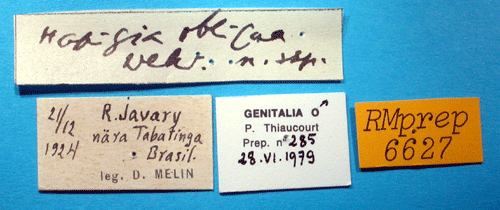 n. ssp.
21/12 1924
R. Javary
nära Tabatinga
Brasil.
leg. D. MELIN
GENITALIA ♂
P. Thiaucourt
Prep. nº 285
28.VI.1979
RMprep
6627